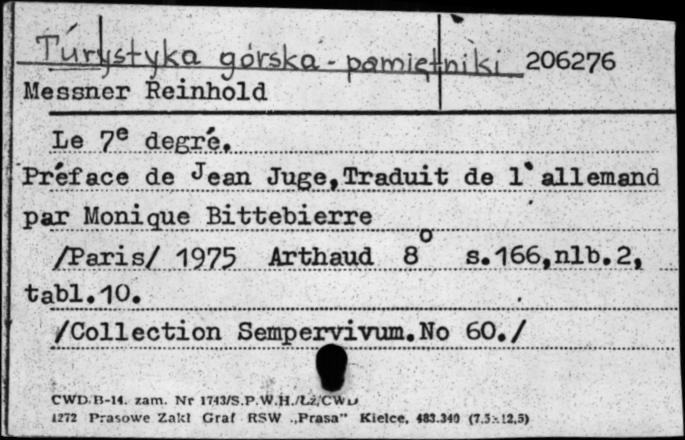 Turystyka górska - pamiętniki 206276
Messner Reinhold
Le 7e degré.
Préface de Jean Juge,Traduit de l'allemand
par Monique Bittebierre
/Paris/ 1975 Arthaud 8o s.166,nlb.2,
tabl.10.
/Collection Sempervivum.No 60./
CWD/B-14. zam. Nr 1743/S.P.W.H./Łż/CWD
1272 Prasowe Zakł Graf RSW „Prasa" Kielce, 483.340 (7,5×12,5)